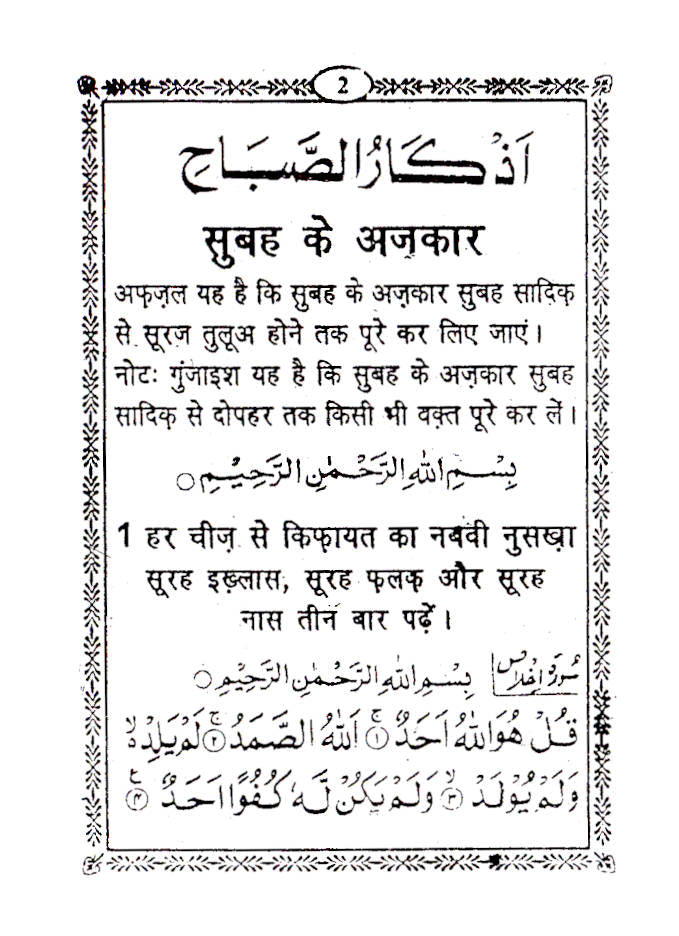 2
اَذْكَارُ الصَّبَاحِ
सुबह के अज़कार
अफ़ज़ल यह है कि सुबह के अज़कार सुबह सादिक़
से सूरज तुलूअ होने तक पूरे कर लिए जाएं।
नोटः गुंजाइश यह है कि सुबह के अज़कार सुबह
सादिक़ से दोपहर तक किसी भी वक़्त पूरे कर लें।
بِسْمِ اللهِ الرَّحْمٰنِ الرَّحِيْمِ ○
1 हर चीज़ से किफ़ायत का नबवी नुसख़ा
सूरह इख़्लास, सूरह फ़लक़ और सूरह
नास तीन बार पढ़ें।
سورة اخلاص بِسْمِ اللهِ الرَّحْمٰنِ الرَّحِيْمِ ○
قُلْ هُوَ اللهُ اَحَدٌ ۚ ﴿۱﴾ اَللهُ الصَّمَدُ ۚ ﴿۲﴾ لَمْ يَلِدْ ۙ۬
وَلَمْ يُوْلَدْ ۙ ﴿۳﴾ وَلَمْ يَكُنْ لَّهٗ كُفُوًا اَحَدٌ ۧ ﴿۴﴾